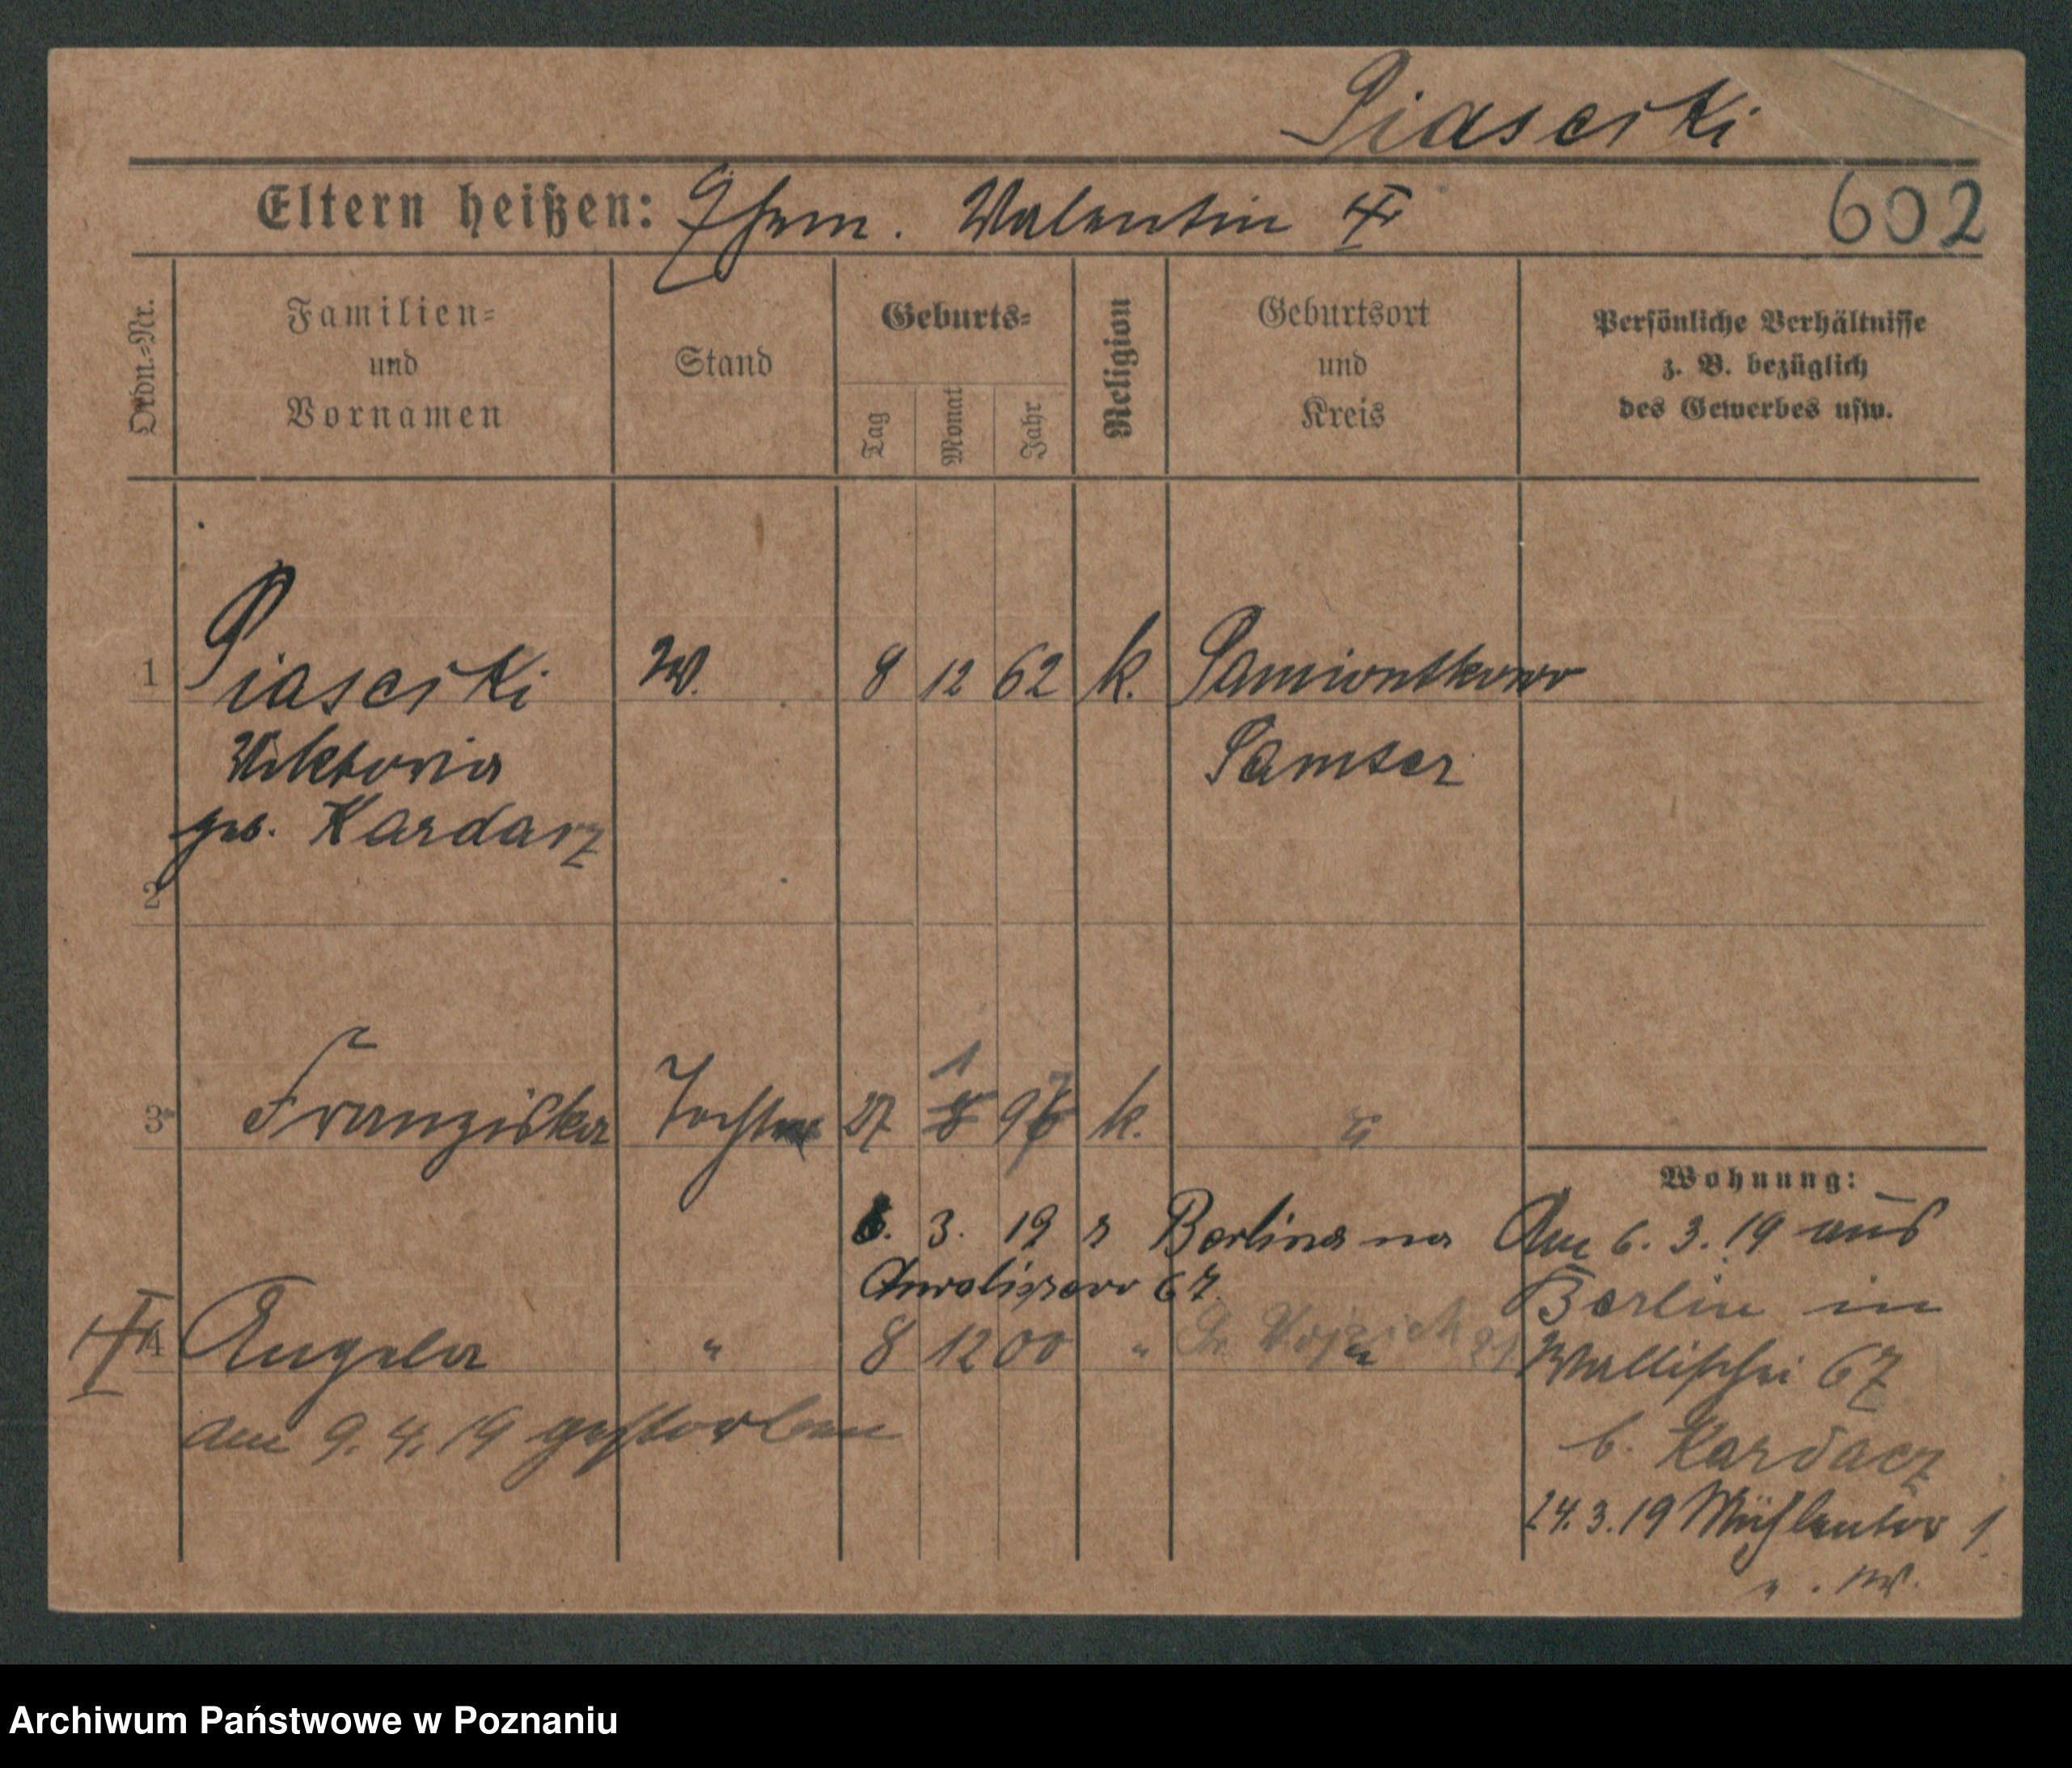 Piasecki
Eltern heißen: Ehem. Valentin
602
Ordn.-Nr.
Familien-
und
Vornamen
Stand
Geburts-
Tag
Monat
Jahr
Religion
Geburtsort
und
Kreis
Persönliche Verhältnisse
z. B. bezüglich
des Gewerbes usw.
1 Piasecki W. 8 12 62 k. Samiontkowo
Viktoria Samter
geb. Kardacz
2
3 Franziska Tochter 27 8 1 96 7 k. "
Wohnung:
6. 3. 19 z Berlina na Am 6. 3. 19 aus
Chwaliszewo 67. Berlin in
4 Angela " 8 12 00 " " Wallischei 67
am 9. 4. 19 gestorben b. Kardacz
24. 3. 19 Mühlentor 1.